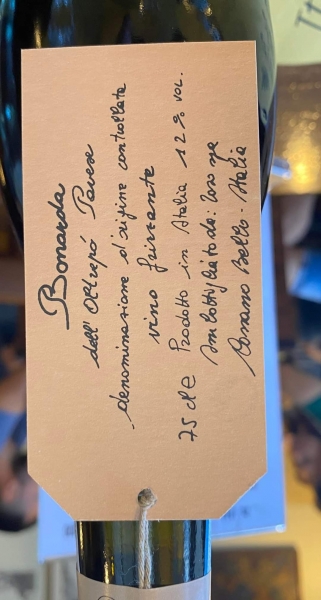 Bonarda
dell'Oltrepó Pavese
denominazione d'origine controllata
vino frizzante
75 cl e Prodotto in Italia 12% vol.
Imbottigliato da: Losito
Casano Bello - Italia